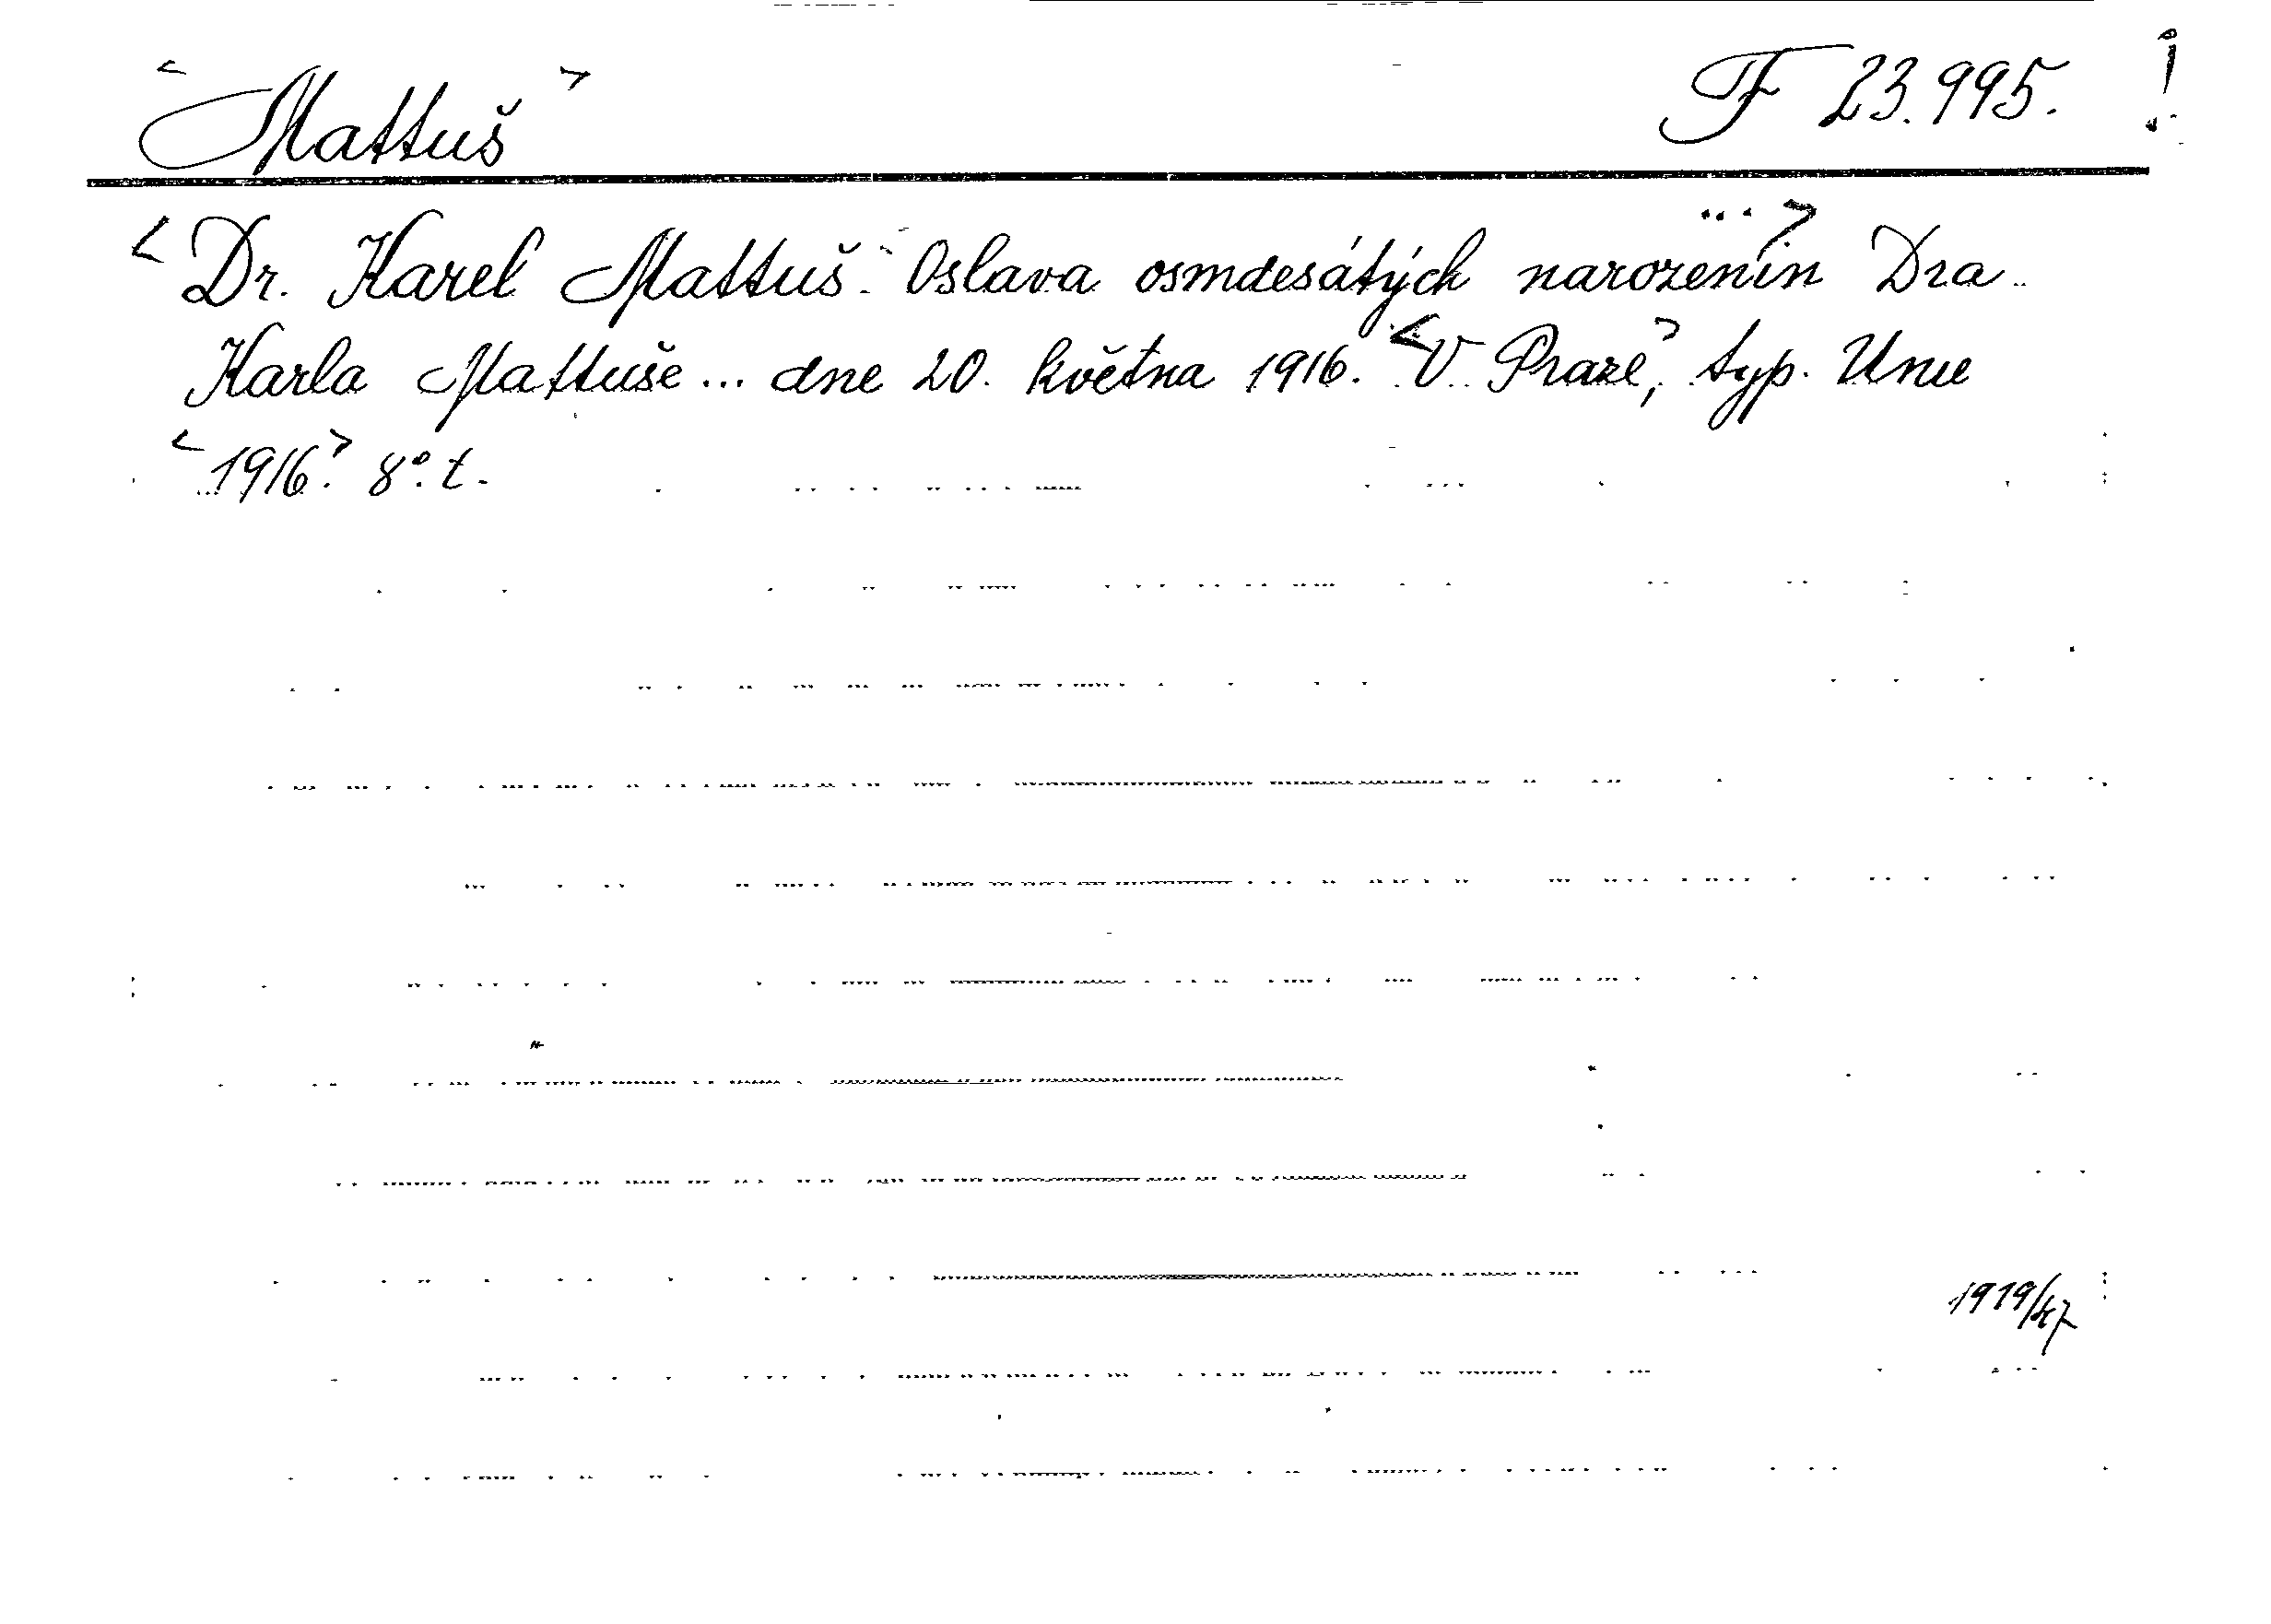 <Mattuš> F 23.995. !
<Dr. Karel Mattuš. Oslava osmdesátých narozenin ...> Dra
Karla Mattuše ... dne 20. května 1916. <V Praze>, typ. Unie
<1916>. 8°. t.
1919/47